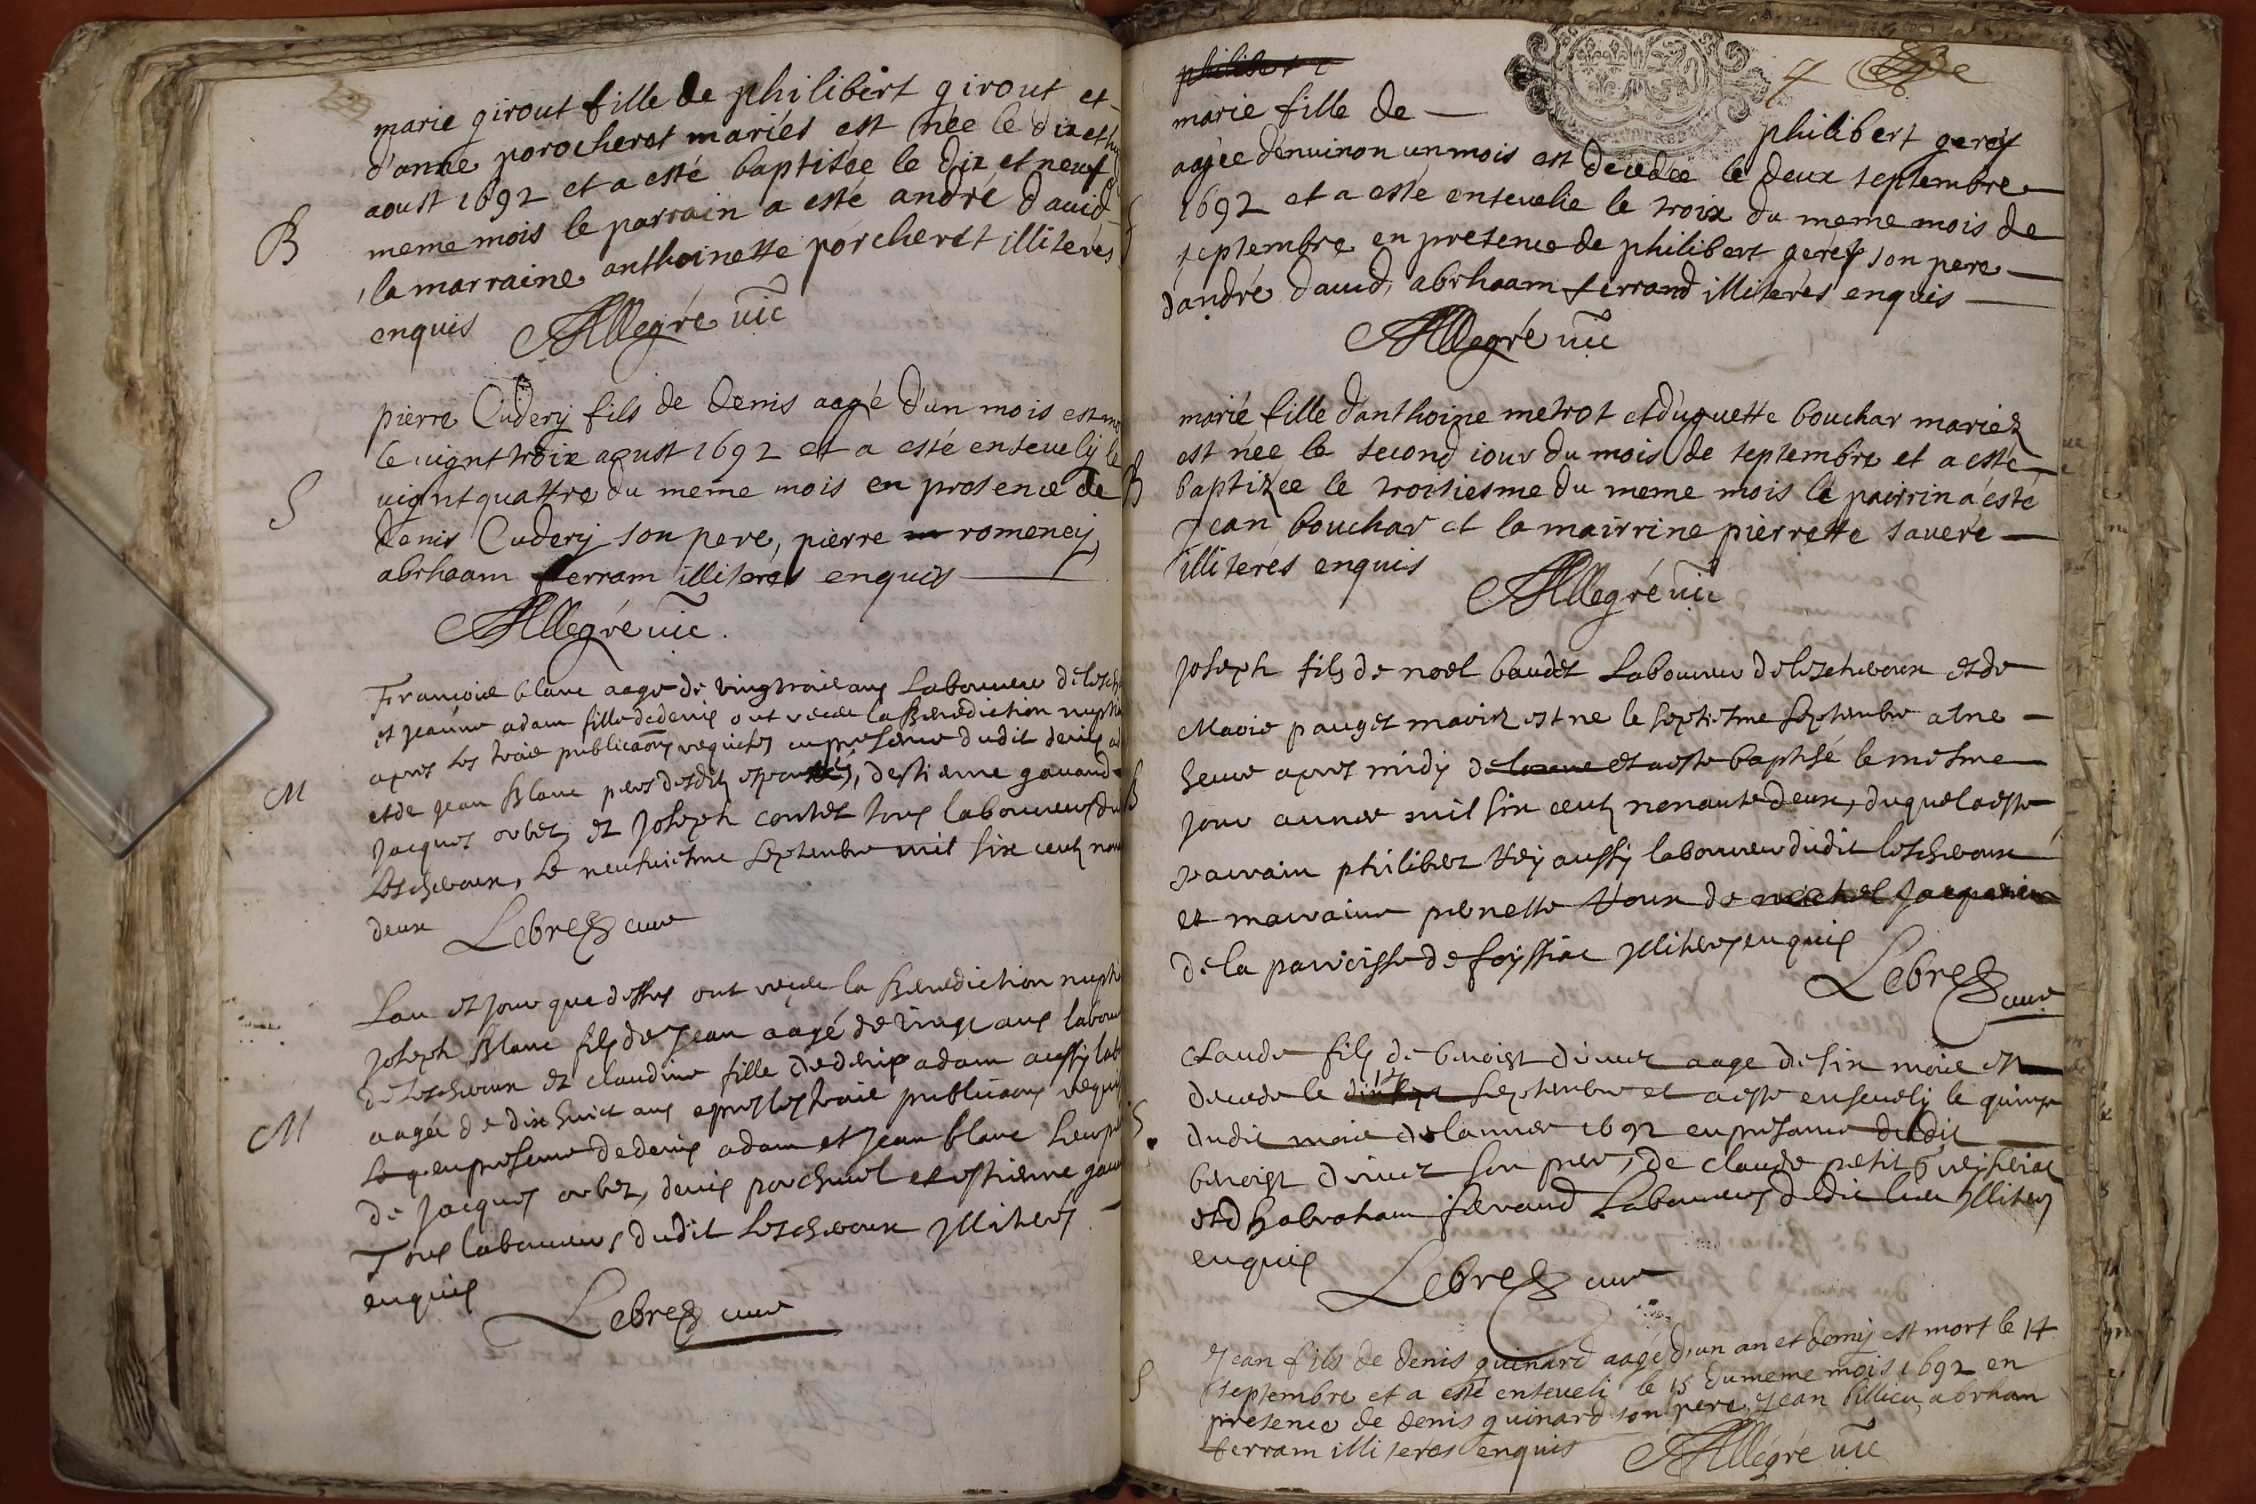 marie girout fille de philibert girout et
d'anne porocheret mariés est née le dix et
aoust 1692 et a esté baptisée le dix et neuf
B meme mois le parrain a esté andré david
la marraine anthoinette porcheret illiterés
enquis Allegré vic
pierre Cudery fils de denis aagé d'un mois est
le vignt troix aoust 1692 et a esté ensevely le
S vignt quattre du meme mois en presence de
denis Cudery son pere, pierre romeney,
abrhaam ferram illiterés enquis
Allegré vic.
François blanc aage de vingt trois ans Laboureur de
et jeanne adam fille de denis ont receu la Benediction
apres les trois publicaons requises en presence dudit denis
M et de jean Blanc peres desdits, destienne gavand
jacques orbet, et joseph contet tous laboureurs du
Leschvoux, le neufviesme septembre mil six cents
deux Lebrez curé
Lan et jour que dessus ont receu la Benediction
joseph Blanc fils de jean aagé de vingt ans
de Leschvoux et claudine fille de denis adam aussy
M aagée de dix huict ans apres les trois publicaons
en presence de denis adam et jean blanc
de jacques orbet, denis porcheret et estienne
Tous laboureurs dudit Leschvoux illiteres
enquis
Lebrez curé
7
marie fille de philibert gerey
agée denuiron un mois est decedée le deux septembre
S 1692 et a esté ensevelie le troix du meme mois de
septembre en presence de philibert gerey son pere
d'andré david, abrhaam ferrand illiterés enquis
Allegré vic
marie fille d'anthoine metrot et d'uguette bouchar mariez
est née le second iour du mois de septembre et a esté
B baptizée le troisiesme du meme mois le pairrin a esté
Jean bouchar et la mairrine pierrette saveré
illiterés enquis
Allegré vic
joseph fils de noel baudet Laboureur de Leschvoux et de
Marie pauget mariez est ne le septiesme septembre a une
heure apres midy et a este baptisé le mesme
B jour annee mil six cents nonante deux, duquel a este
parrain philibert aussy laboureur dudit Leschvoux
et marraine pernette de
de la parroisse de foissiac illiteres enquis
Lebrez
curé
Claude fils de benoist aage de six mois est
decede le septembre et a este ensevely le quinze
S dudit mois de lannee 1692 en presence dudit
benoist son pere, de claude petit
et dhabraham ferrand Laboureurs dudit lieu illiteres
enquis
Lebrez curé
Jean fils de denis guinard aagé d'un an et demy est mort le 14
S septembre et a esté enseveli le 15 du meme mois 1692 en
presence de denis guinard son pere, Jean billieu, abrham
ferram illiterés enquis Allegré vic